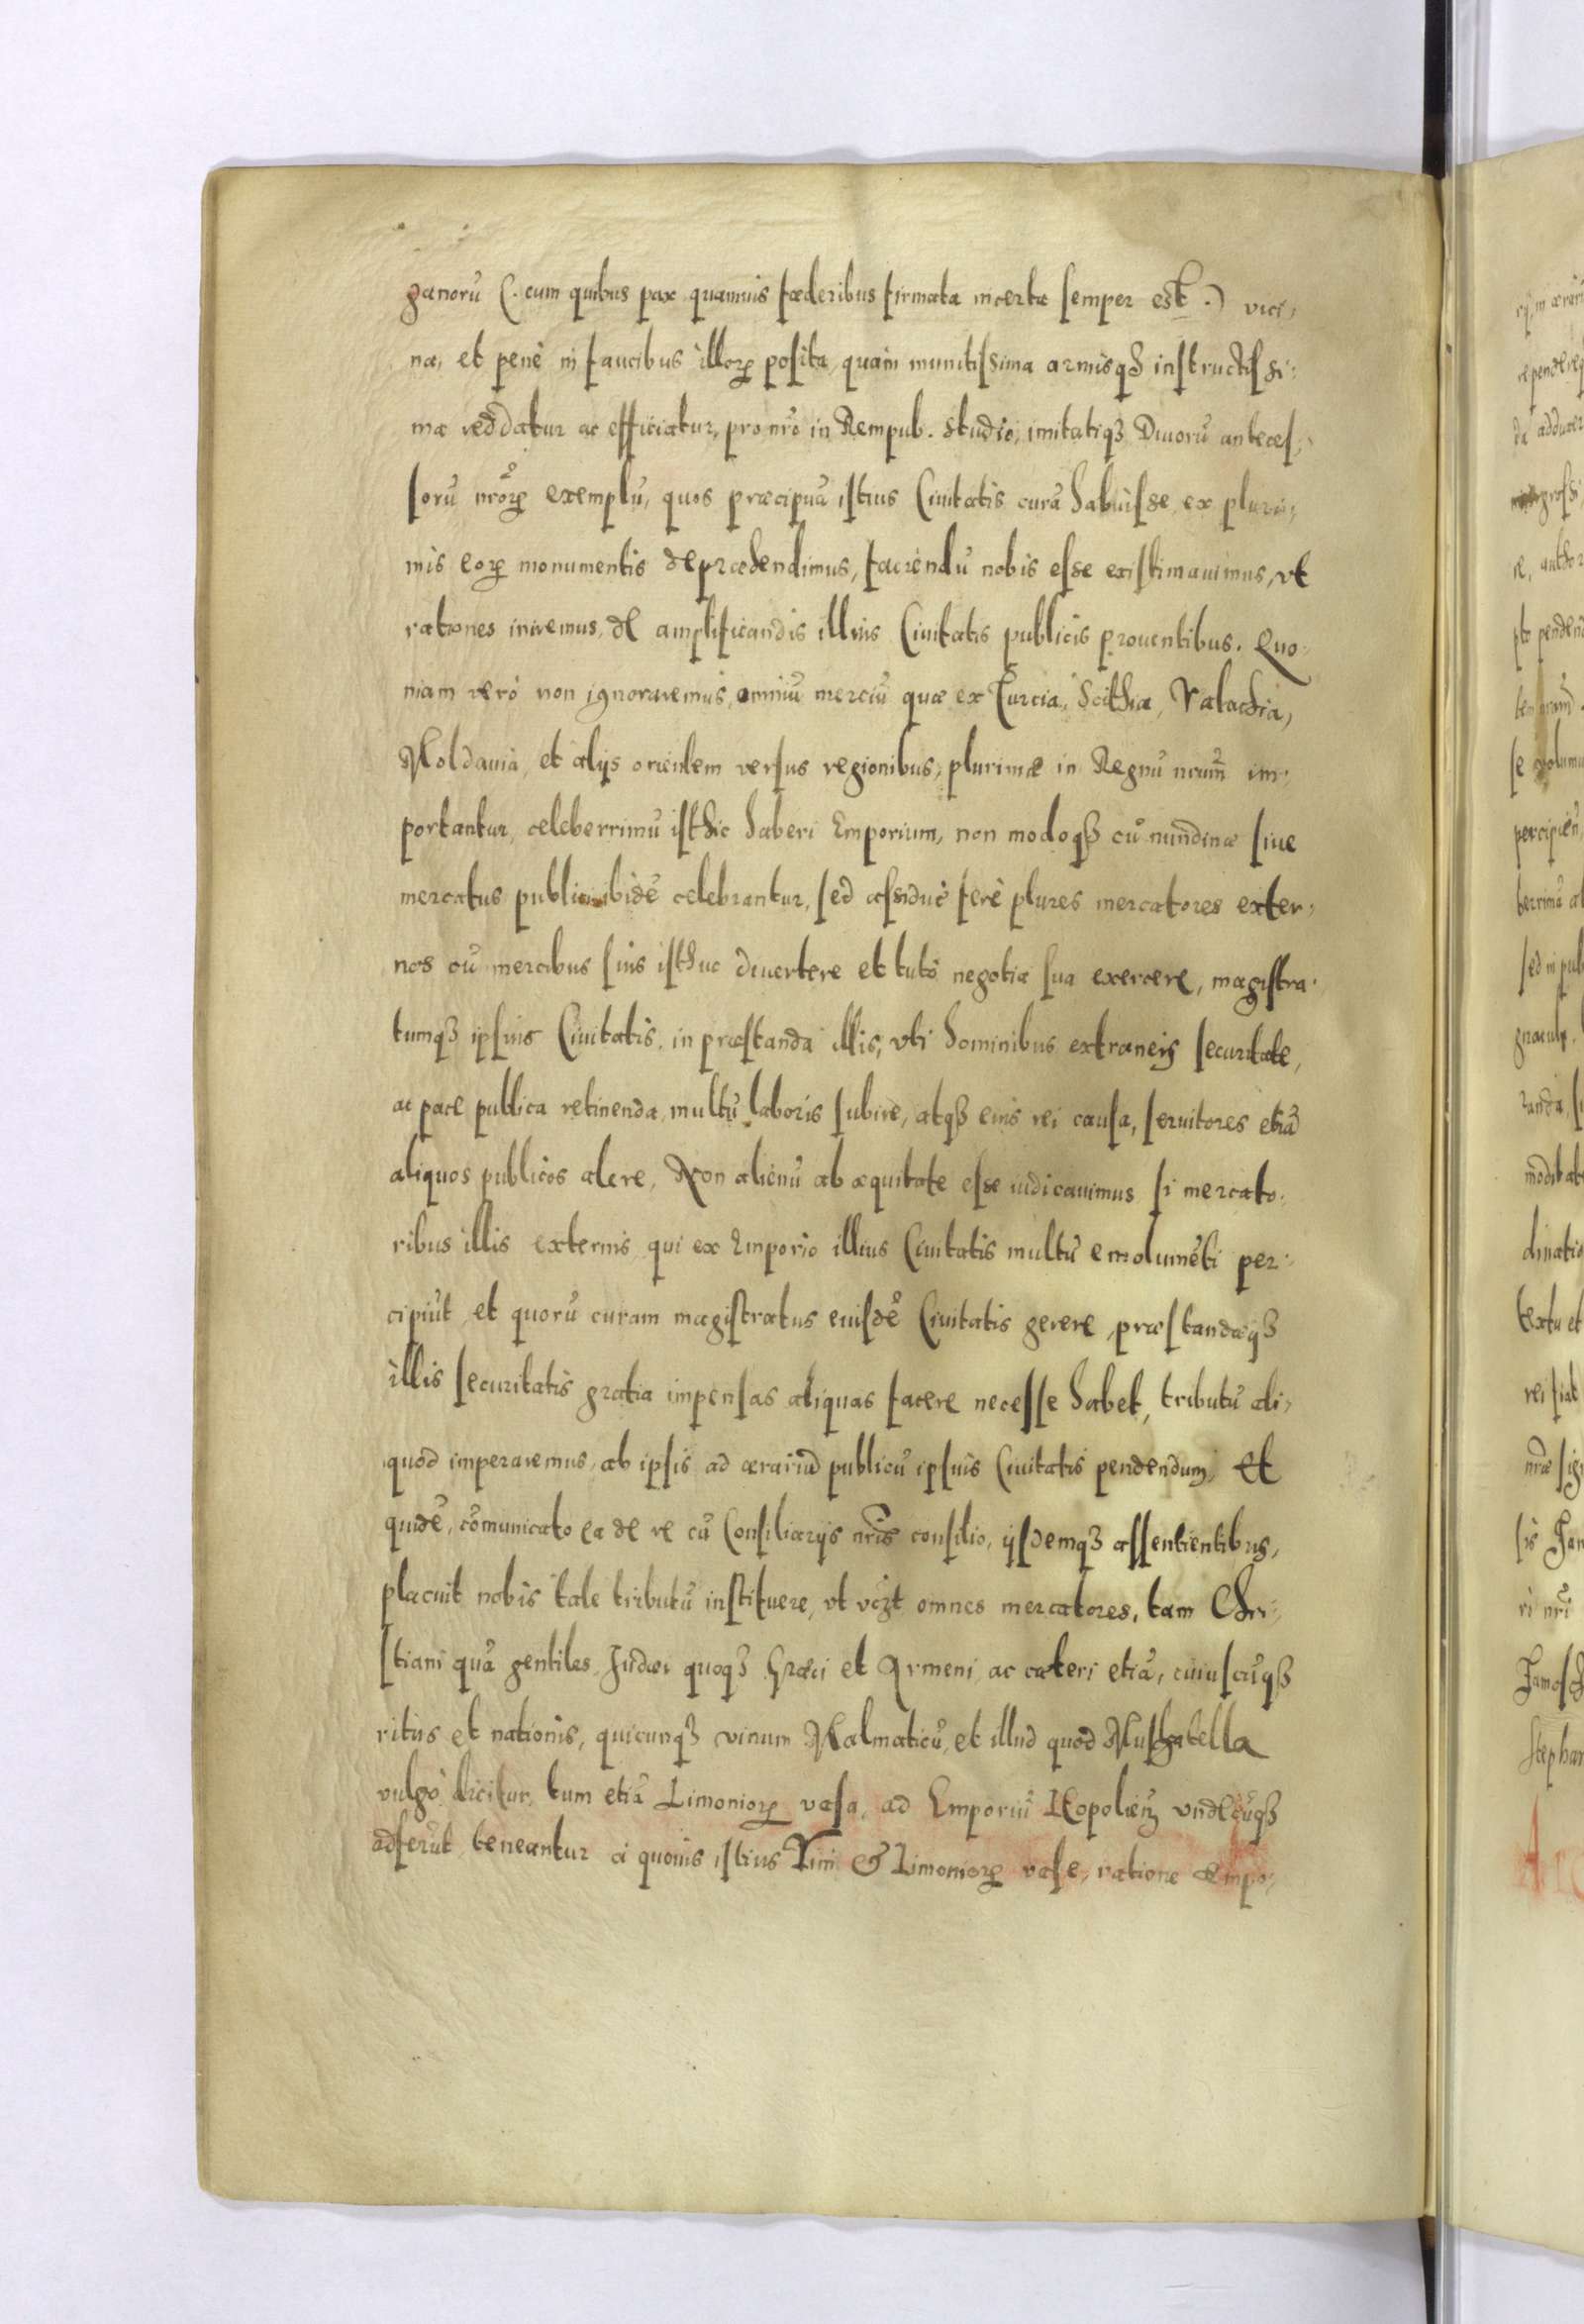 ganorũ (. cum quibus pax quamuis fæderibus firmata incerta semper est .) vici,
na, et penè in faucibus illorꝝ posita, quam munitissima armisqꝫ instructissi:
ma reddatur ac efficiatur, pro nrõ in Rempub. studio, imitatiqꝫ Diuorũ anteces,
sorũ nrõꝝ exemplũ, quos præcipuã istius Ciuitatis curã habuisse, ex pluri,
mis eorꝝ monumentis deprædendimus, faciendũ nobis esse existimauimus, vt
rationes iniremus, de amplificandis illius Ciuitatis publicis prouentibus. Quo,
niam verò non ignoraremus, omniũ merciũ quæ ex Turcia, Scithia, Valachia,
Moldauia, et alijs orientem versus regionibus, plurimæ in Regnũ nrum̃ im,
portantur, celeberrimũ isthic haberi Emporium, non modoqꝫ cũ nundinæ siue
mercatus publici ibidẽ celebrantur, sed assiduè ferè plures mercatores exter,
nos cũ mercibus suis isthuc diuertere et tutò negotia sua exercere, magistra,
tumqꝫ ipsius Ciuitatis, in præstanda illis, vti hominibus extraneis securitate,
ac pace publica retinenda, multũ laboris subire, atqꝫ eius rei causa, seruitores etiã
aliquos publicos alere, Non alienũ ab æquitate esse iudicauimus si mercato,
ribus illis externis qui ex Emporio illius Ciuitatis multũ emolumẽti per,
cipiũt, et quorũ curam magistratus eiusdẽ Ciuitatis gerere, præstandæqꝫ
illis securitatis gratia impensas aliquas facere necesse habet, tributũ ali,
quod imperaremus, ab ipsis ad ærariũ publicũ ipsius Ciuitatis pendendum, Et
quidẽ, cõmunicato ea de re cũ Consiliarijs nrĩs consilio, ijsdemqꝫ assentientibus,
placuit nobis tale tributũ instituere, vt vcꝫt omnes mercatores, tam Chri,
stiani quã gentiles, Judæi quoqꝫ Græci et Armeni, ac cæteri etiã, cuiuscũqꝫ
ritus et nationis, quicunqꝫ vinum Malmaticũ, et illud quod Muskatella
vulgò dicitur, tum etiã Limoniorꝝ vasa, ad Emporiũ Leopolieñ vndecũqꝫ
adferũt, teneantur à quouis istius Vini & Limoniorꝝ vase, ratione Empo,